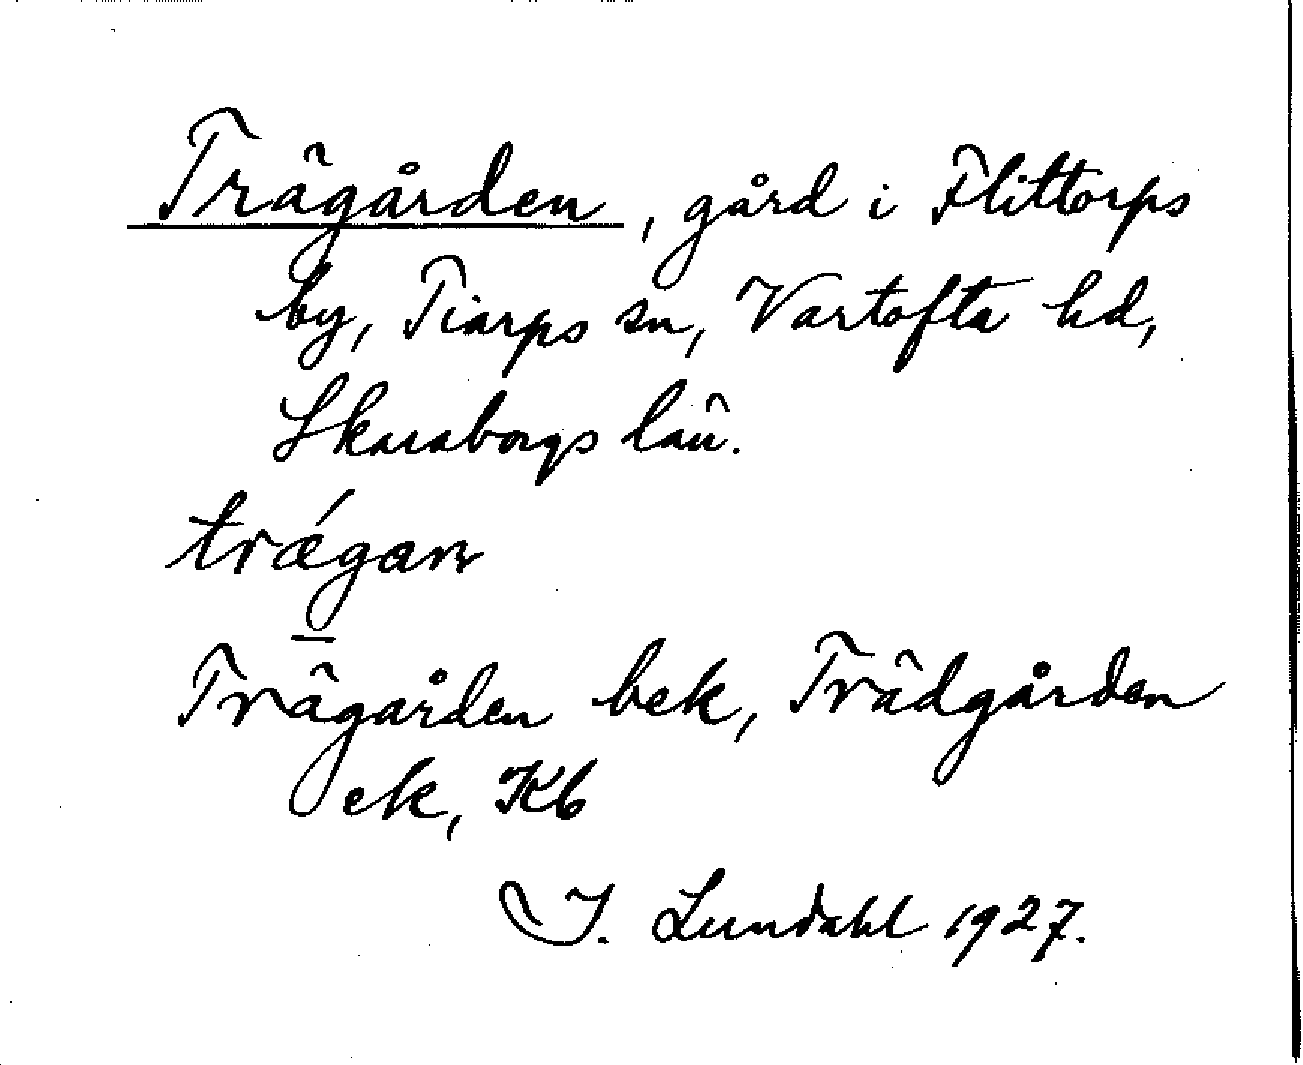 Trägården, gård i Flittorps
by, Tiarps sn, Vartofta hd,
Skaraborgs län.
trǽgan
Trägården bek, Trädgården
ek, Kb
I. Lundahl 1927.